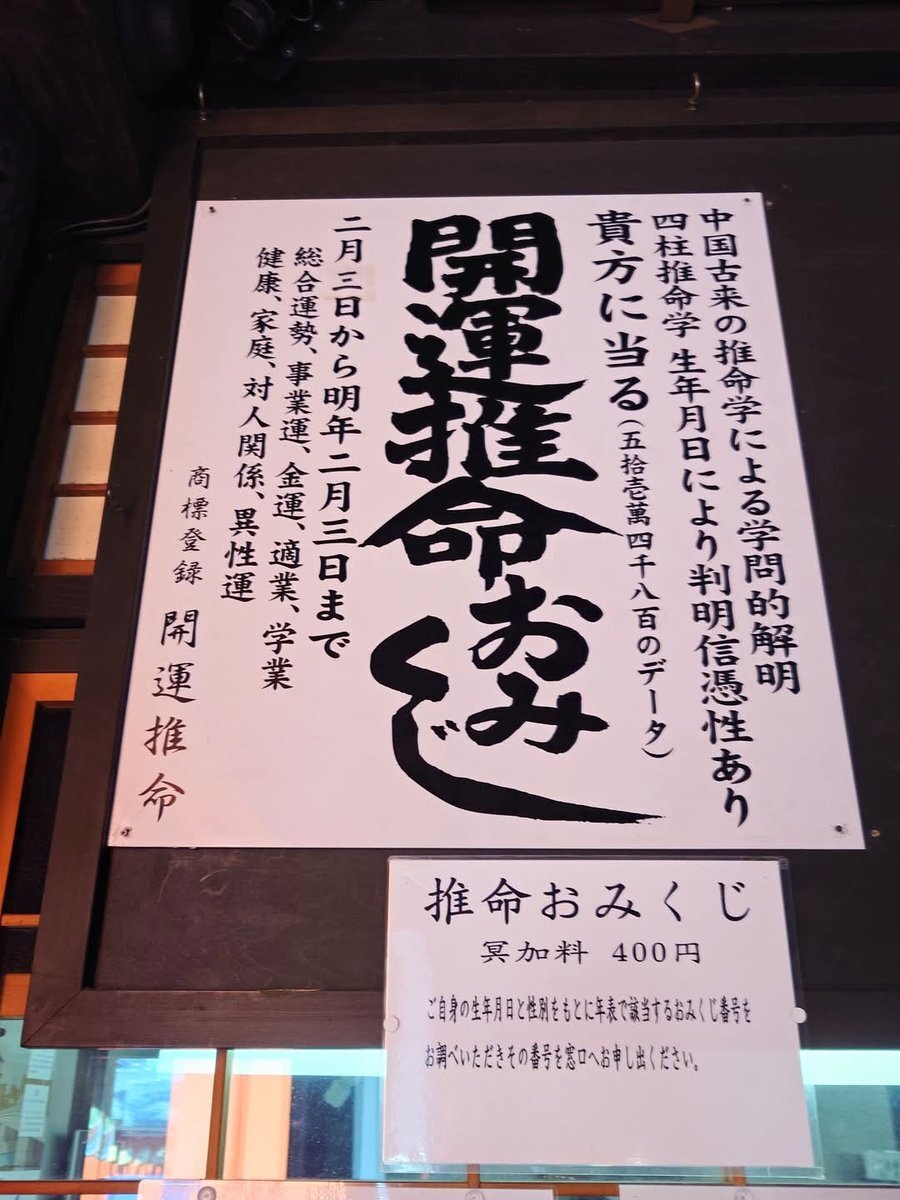 中国古来の推命学による学問的解明
四柱推命学 生年月日により判明信憑性あり
貴方に当る(五拾壱萬四千八百のデータ)
開運推命おみくじ
二月三日から明年二月三日まで
総合運勢、事業運、金運、適業、学業
健康、家庭、対人関係、異性運
商標登録 開運推命
推命おみくじ
冥加料 400円
ご自身の生年月日と性別をもとに年表で該当するおみくじ番号を
お調べいただきその番号を窓口へお申し出ください。